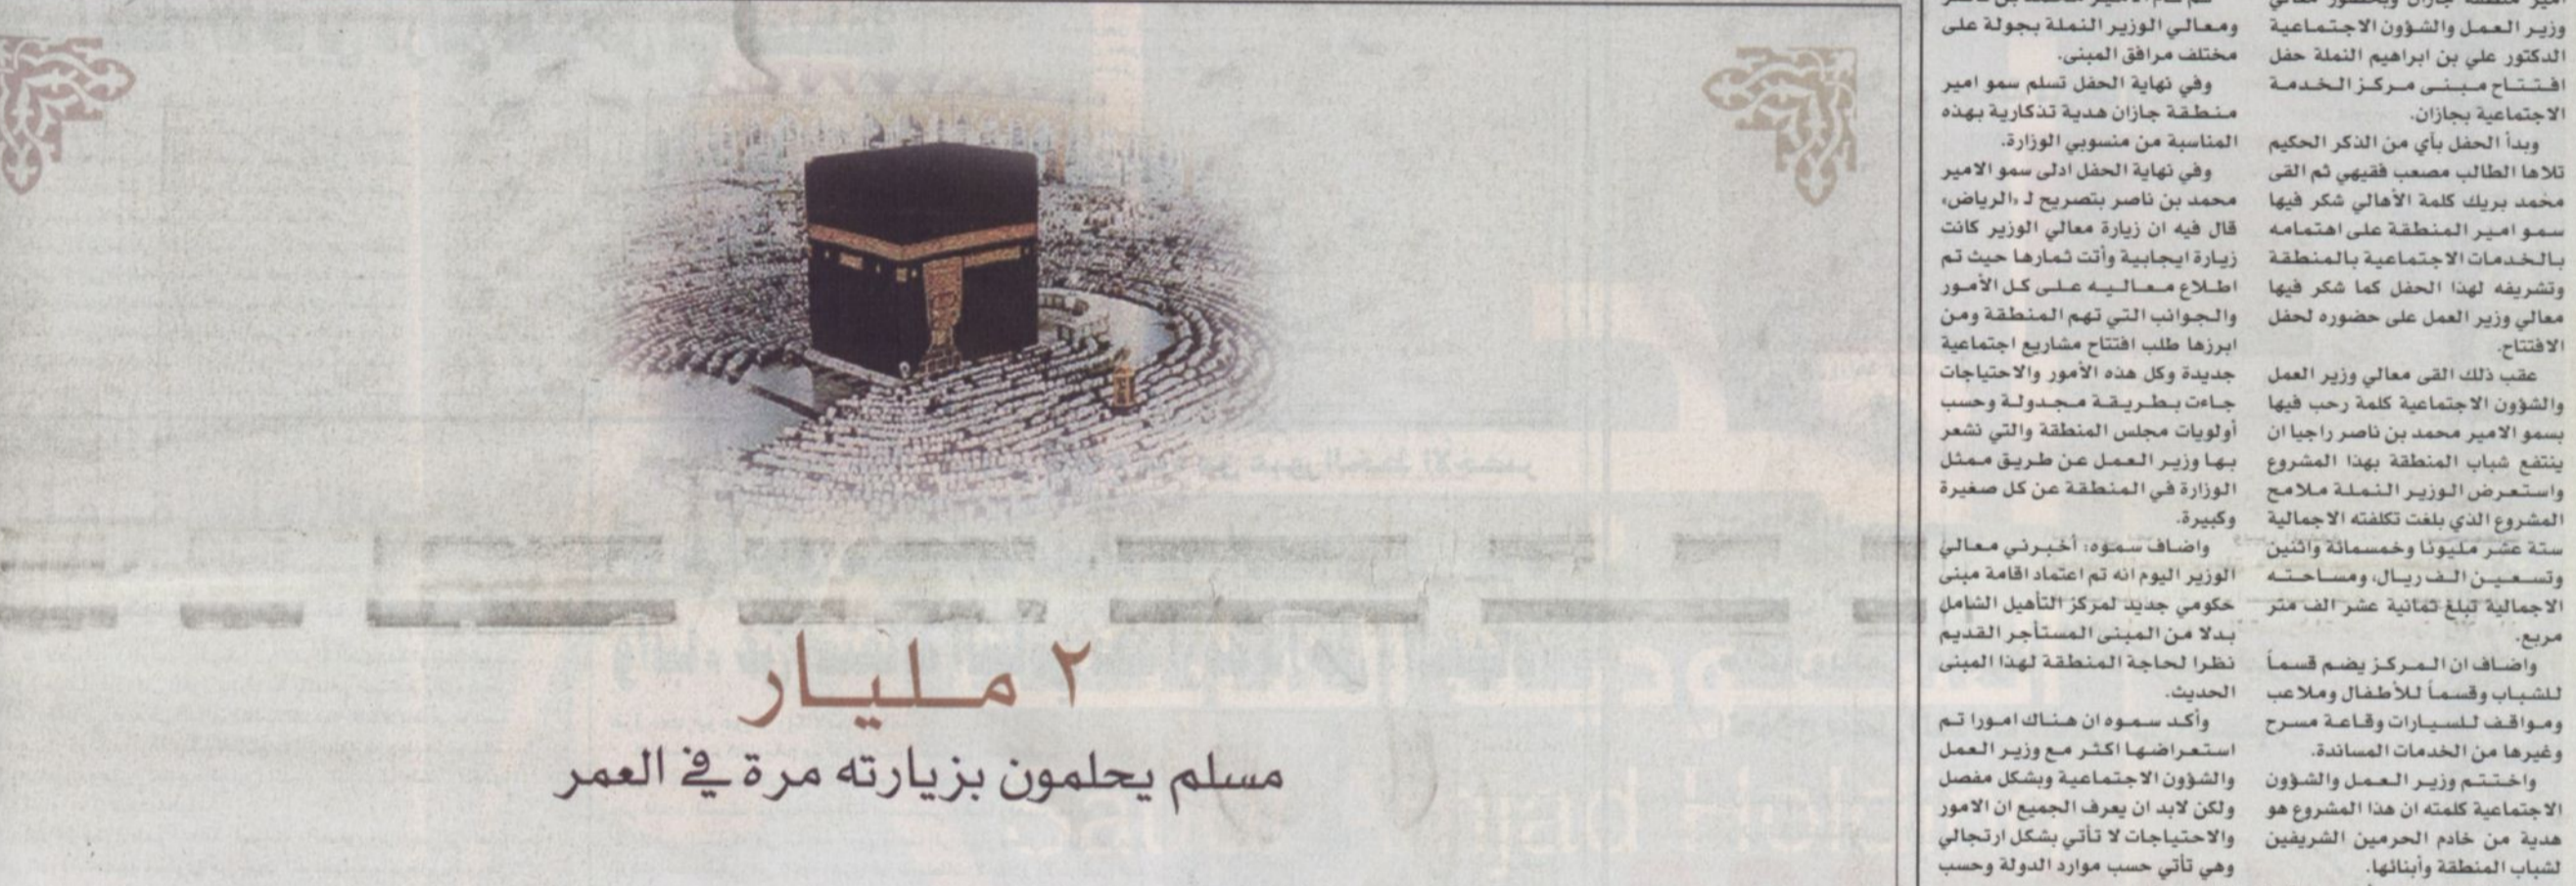 امير منطقة جازان وبحضور معالي
وزير العمل والشؤون الاجتماعية
الدكتور علي بن ابراهيم النملة حفل
افتتاح مبنى مركز الخدمة
الاجتماعية بجازان.
وبدأ الحفل بأي من الذكر الحكيم
تلاها الطالب مصعب فقيهي ثم القى
محمد بريك كلمة الأهالي شكر فيها
سمو امير المنطقة على اهتمامه
بالخدمات الاجتماعية بالمنطقة
وتشريفه لهذا الحفل كما شكر فيها
معالي وزير العمل على حضوره لحفل
الافتتاح.
عقب ذلك القى معالي وزير العمل
والشؤون الاجتماعية كلمة رحب فيها
بسمو الامير محمد بن ناصر راجيا ان
ينتفع شباب المنطقة بهذا المشروع
واستعرض الوزير النملة ملامح
المشروع الذي بلغت تكلفته الاجمالية
ستة عشر مليونا وخمسمائة واثنين
وتسعين الف ريال، ومساحته
الاجمالية تبلغ ثمانية عشر الف متر
مربع.
واضاف ان المركز يضم قسماً
للشباب وقسماً للأطفال وملاعب
ومواقف للسيارات وقاعة مسرح
وغيرها من الخدمات المساندة.
واختتم وزير العمل والشؤون
الاجتماعية كلمته ان هذا المشروع هو
هدية من خادم الحرمين الشريفين
لشباب المنطقة وأبنائها.
ومعالي الوزير النملة بجولة على
مختلف مرافق المبنى.
وفي نهاية الحفل تسلم سمو امير
منطقة جازان هدية تذكارية بهذه
المناسبة من منسوبي الوزارة.
وفي نهاية الحفل ادلى سمو الامير
محمد بن ناصر بتصريح لـ «الرياض»
قال فيه ان زيارة معالي الوزير كانت
زيارة ايجابية وأتت ثمارها حيث تم
اطلاع معاليه على كل الأمور
والجوانب التي تهم المنطقة ومن
ابرزها طلب افتتاح مشاريع اجتماعية
جديدة وكل هذه الأمور والاحتياجات
جاءت بطريقة مجدولة وحسب
أولويات مجلس المنطقة والتي نشعر
بها وزير العمل عن طريق ممثل
الوزارة في المنطقة عن كل صغيرة
وكبيرة.
واضاف سموه: أخبرني معالي
الوزير اليوم انه تم اعتماد اقامة مبنى
حكومي جديد لمركز التأهيل الشامل
بدلا من المبنى المستأجر القديم
نظرا لحاجة المنطقة لهذا المبنى
الحديث.
وأكد سموه ان هناك امورا تم
استعراضها اكثر مع وزير العمل
والشؤون الاجتماعية وبشكل مفصل
ولكن لابد ان يعرف الجميع ان الامور
والاحتياجات لا تأتي بشكل ارتجالي
وهي تأتي حسب موارد الدولة وحسب
٢ مليار
مسلم يحلمون بزيارته مرة في العمر